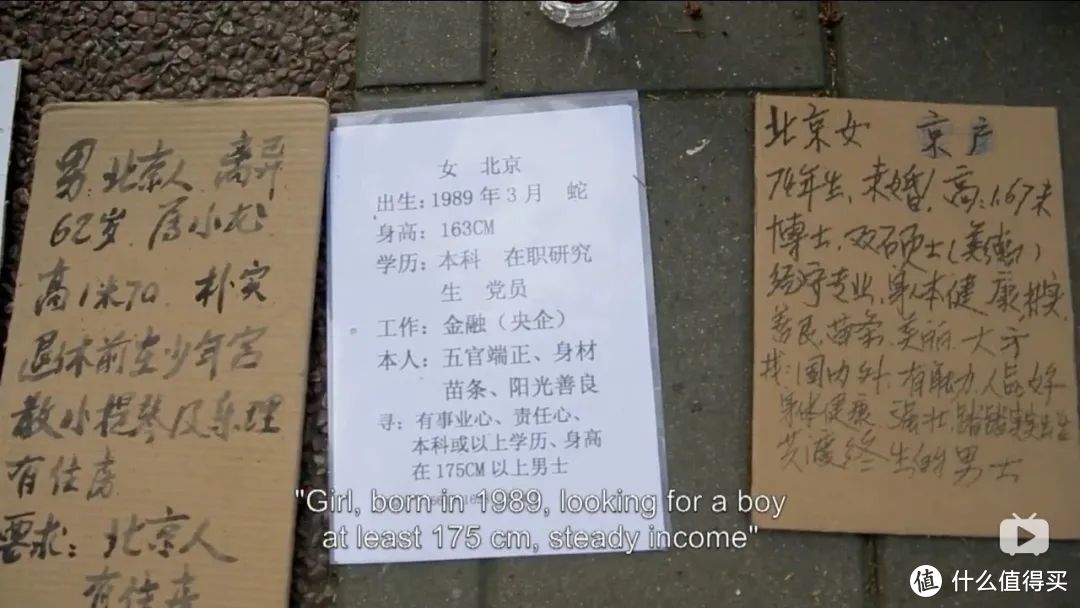 男 北京人 离异
62岁 属小龙
高1米70 朴实
退休前在少年宫
教小提琴及乐理
有住房
要求: 北京人
有住房
女 北京
出生: 1989年3月 蛇
身高: 163CM
学历: 本科 在职研究
生 党员
工作: 金融（央企）
本人: 五官端正、身材
苗条、阳光善良
寻: 有事业心、责任心、
本科或以上学历、身高
在175CM以上男士
北京女 京户
74年生、未婚! 高:1.67米
博士、双硕士(美、)
经济专业、身体健康 朴实
善良、苗条、美丽、大方
找:国内外 有能力、人品好
身体健康、强壮、踏踏实实
共渡终生的男士
"Girl, born in 1989, looking for a boy
at least 175 cm, steady income"
值 什么值得买